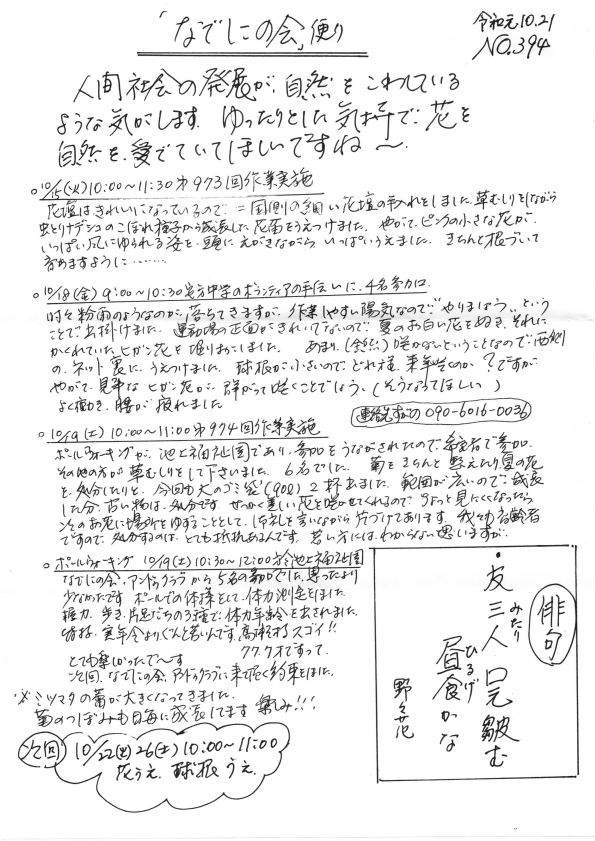 「なでしこの会」便り
令和元.10.21
NO.394
人間社会の発展が、自然をこわしている
ような気がします。ゆったりとした気持で、花を
自然を愛でていてほしいですね～。
○10/15(火)10:00～11:30 第973回作業実施
花壇はきれいになっているので、二国側の細い花壇の手入れをしました。草むしりをしながら
虫とりナデシコのこぼれ種子から成長した花苗をうえつけました。やがて、ピンクの小さな花が、
いっぱい風にゆられる姿を頭にえがきながら いっぱいうえました。きちんと根づいて
育めますように………
○10/18(金)9:00～10:30 中学のボランティアの手伝いに、4名参加
時々粉雨のようなのが、落ちてきますが、作業しやすい陽気なので"やりましょう"という
ことで出掛けました。運動場の正面がきれいでないので、夏のお白い花をぬき、それに
かくれていたヒガン花を堀りおこしました。あまり(全然)咲かないということなので、西側
の、ネット裏に、うえつけました。球根が小さいので、どれ程、来年咲くのか？ですが
やがて、見事な ヒガン花が、群がって咲くことでしょう、(そうなってほしい)
よく働き、腰が疲れました
連絡 090-6016-0036
○10/19(土)10:00～11:00 第974回作業実施
ポールウォーキングが、池上福祉園であり、参加をうながされたので、希望者で参加、
その他の方が草むしりをして下さいました。6名でした。菊をきちんと整えたり夏の花
を処分したりと、今回も大のゴミ袋(90ℓ)2杯出ました。範囲が広いので、成長
した分、古い物は、処分です。せっかく美しい花を咲かせてくれるので、ちょっと見にくくなったら
次のお花に場所をゆずることとして、お礼を言いながら片づけてあります。我々も高齢者
ですので、処分するのは、とても抵抗あるんです。若い方にはわからない思いですが、
○ポールウォーキング 10/19(土)10:30～12:00 於池上福祉園
なでしこの会、アンドゥクラブから5名の参加でした。思ったより
少なめです。ポールでの体操をして、体力測定をしました。
握力、歩き、片足だちの3種で、体力年齢を出されました。
皆様、実年令よりぐんと若いんです。高齢者スゴイ!!
とても楽しかったで～す
次回、なでしこの会、アンドゥクラブに来て頂く約束をしました。
※ミツマタの蕾が大きくなってきました。
菊のつぼみも日毎に成長してます 楽しみ!!!
次回 10/22(火)26(土)10:00～11:00
花うえ 球根うえ
俳句
・友三人 口元皺む
みたり
昼食かな
ひるげ
野々花